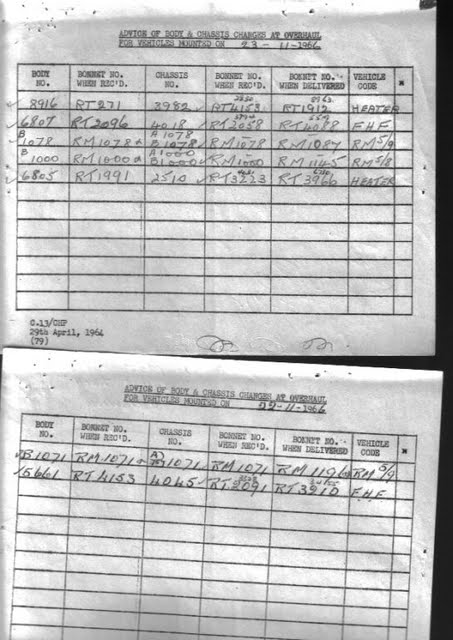 ADVICE OF BODY & CHASSIS CHANGES AT OVERHAUL
FOR VEHICLES MOUNTED ON 23-11-1966
BODY NO. BONNET NO. WHEN REC'D. CHASSIS NO. BONNET NO. WHEN REC'D. BONNET NO. WHEN DELIVERED VEHICLE CODE *
8916 RT271 3982 RT4153 RT1912 HEATER
6807 RT2096 4018 RT2058 RT4088 F.H.F.
B1078 RM1078 A1078 B1078 RM1078 RM1087 RM5/9
B1000 RM1000 A1000 B1000 RM1000 RM1145 RM5/8
6805 RT1991 2510 RT3223 RT3966 HEATER
C.13/CHP
29th April, 1964
(79)
ADVICE OF BODY & CHASSIS CHANGES AT OVERHAUL
FOR VEHICLES MOUNTED ON 22-11-1966
BODY NO. BONNET NO. WHEN REC'D. CHASSIS NO. BONNET NO. WHEN REC'D. BONNET NO. WHEN DELIVERED VEHICLE CODE *
B1071 RM1071 A1071 RM1071 RM1196 RM5/9
6661 RT4153 4045 RT2091 RT3910 F.H.F.